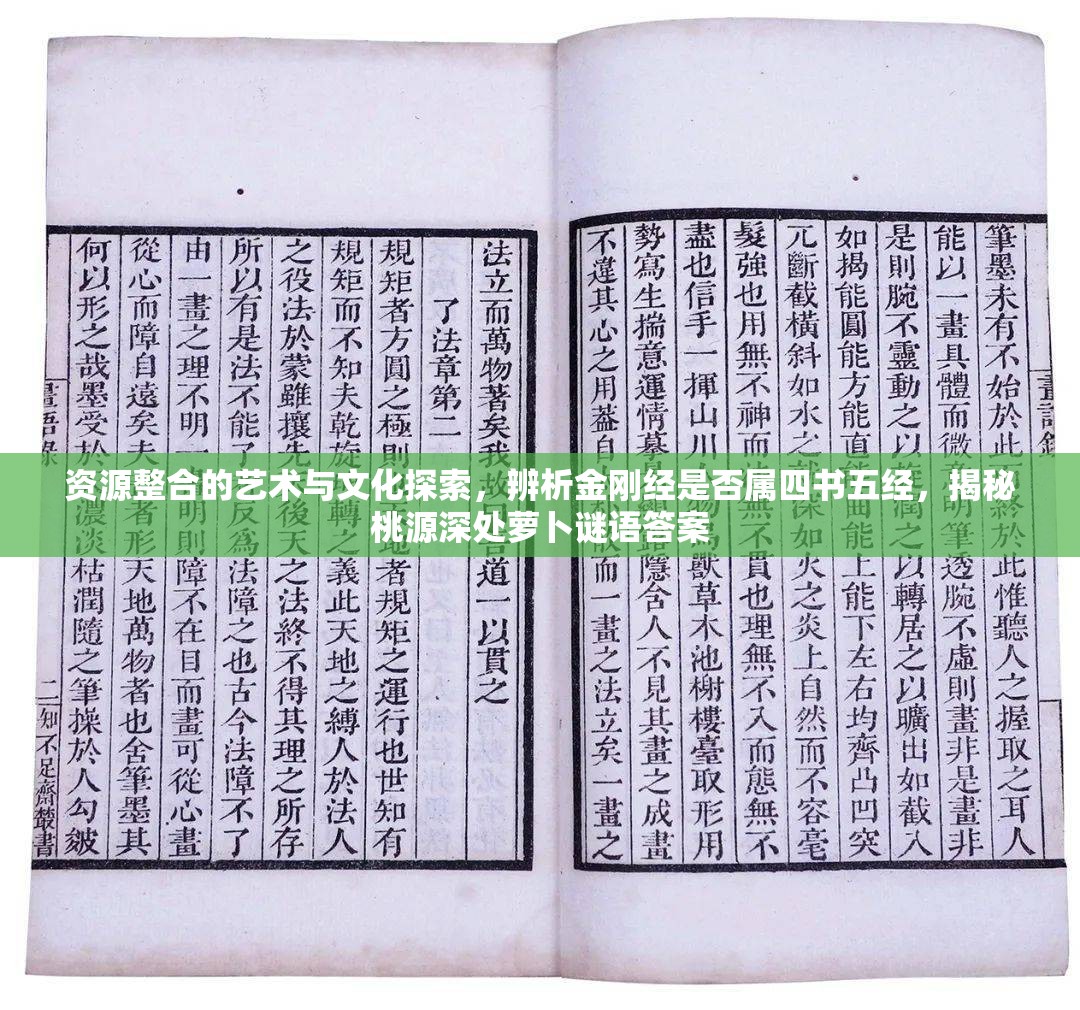 资源整合的艺术与文化探索，辨析金刚经是否属四书五经，揭秘
桃源深处萝卜谜语答案
筆墨未有不始於此終於此惟聽人之握取之耳人
能以一畫具體而微明筆透腕不虛則畫非是畫非
是則腕不靈動之以潤之以轉居之以曠出如截入
如揭能圓能方能直能曲能上能下左右均齊凸凹突
兀斷截橫斜如水之深如火之炎上自然而不容毫
髮強也用無不神而無不貫也理無不入而態無不
盡也信手一揮山川人物獸草木池榭樓臺取形用
勢寫生揣意運情摹景露隱含人不見其畫之成畫
不違其心之用葢自散而一畫之法立矣一畫之
法立而萬物著矣我故道一以貫之
了法章第二
規矩者方圓之極則地者規矩之運行也世知有
規矩而不知夫乾旋轉之義此天地之縛人於法人
之役法於蒙雖攘先天後天之法終不得其理之所存
所以有是法不能了反爲法障之也古今法障不了
由一畫之理不明一明則障不在目而畫可從心畫
從心而障自遠矣夫者形天地萬物者也舍筆墨其
何以形之哉墨受於濃淡枯潤隨之筆操於人勾皴
畫語錄
二
知不足齋叢書